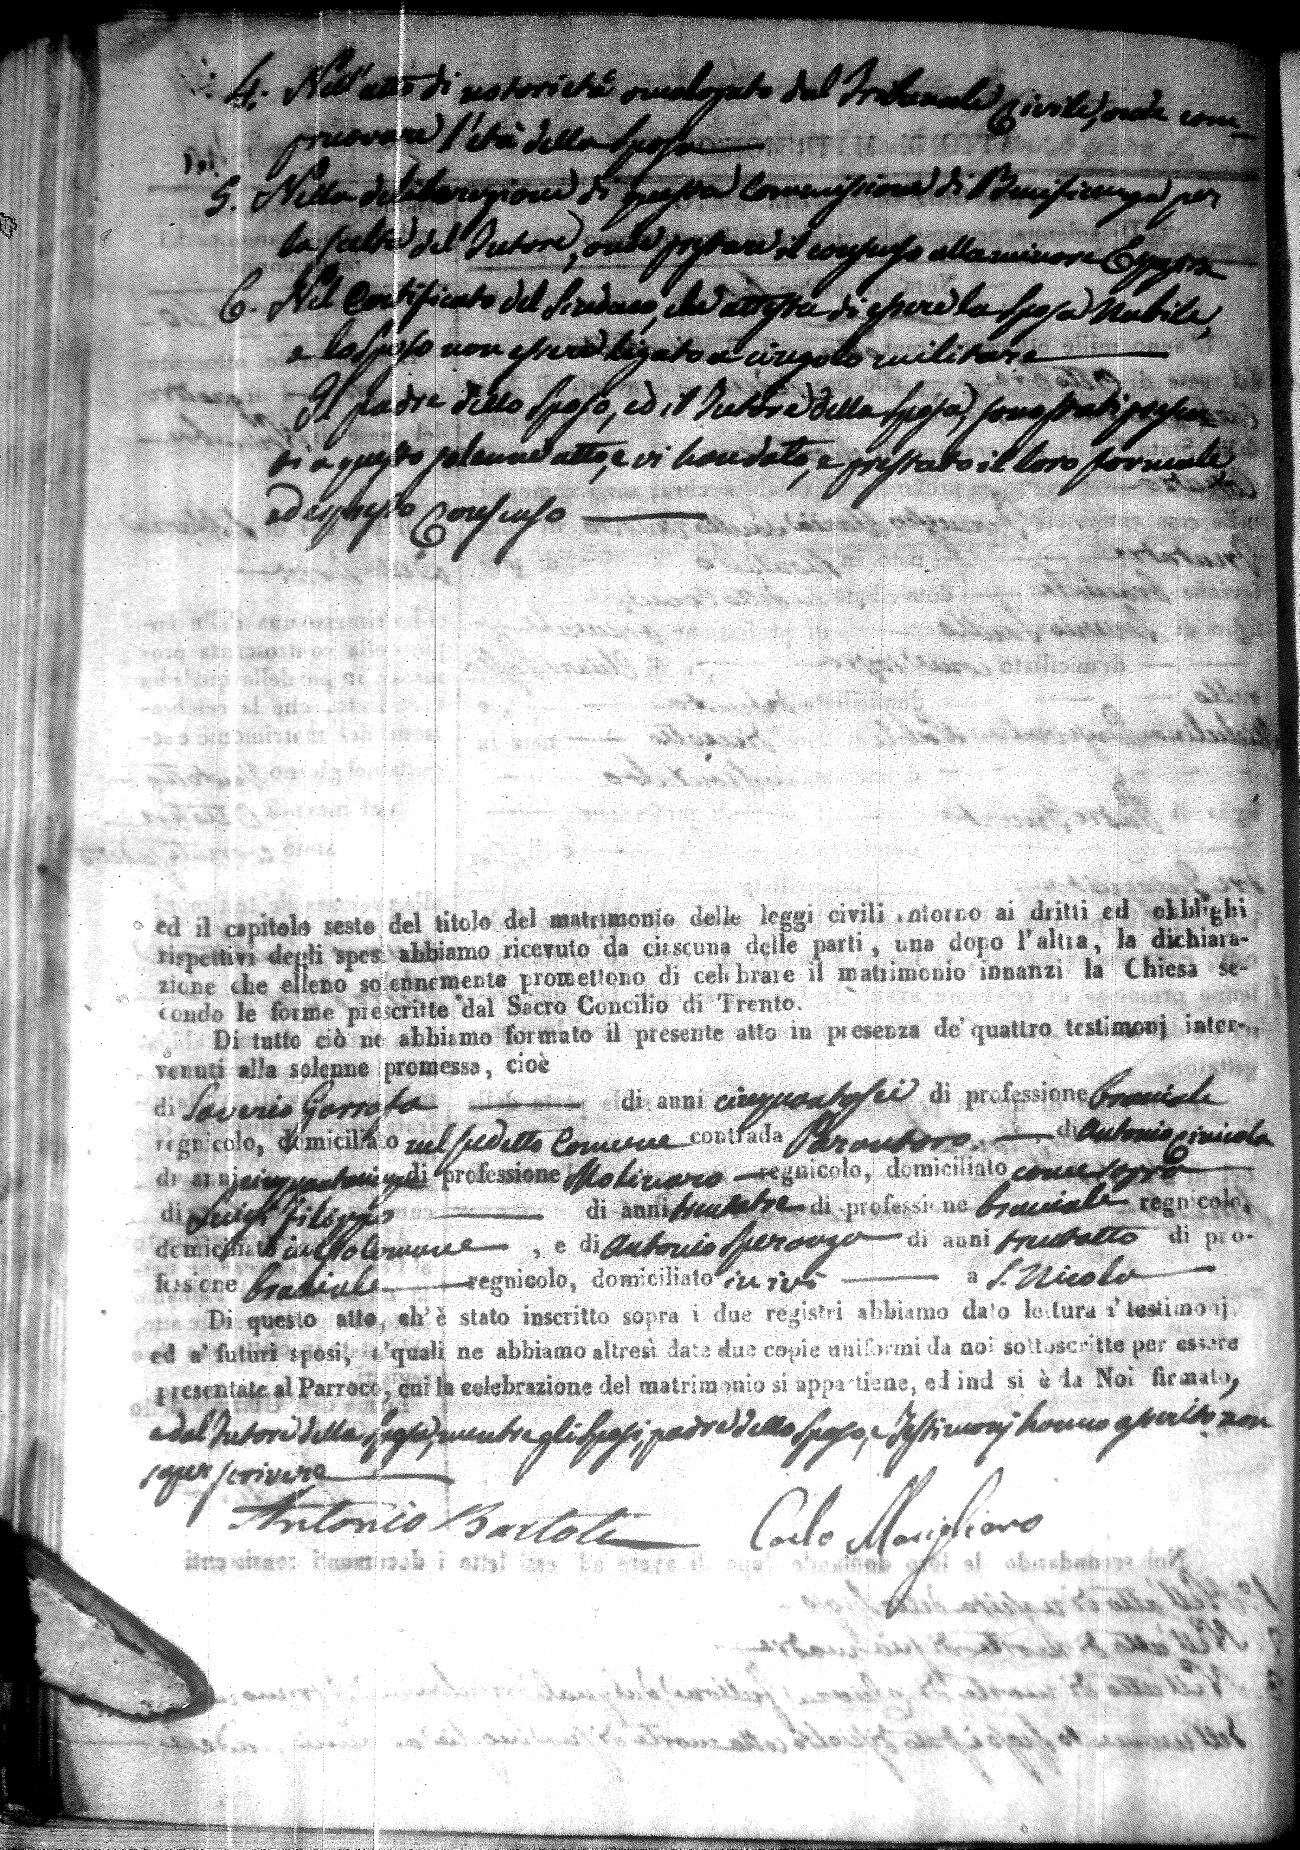 4. Nell'atto di notorietà omologato dal Tribunale Civile, onde com-
pruovare l'età della Sposa
5. Nella deliberazione di questa Commissione di Beneficenza per
la scelta del Tutore, onde prestare il consenso alla minore Esposta
6. Nel Certificato del Sindaco, che attesta di essere la Sposa Nubile,
e lo Sposo non essere ligato a cingolo militare
Il padre dello Sposo, ed il Tutore della Sposa, sono stati presen-
ti a questo solenne atto, e vi han dato, e prestato il loro formale
ed espresso Consenso
ed il capitolo sesto del titolo del matrimonio delle leggi civili intorno ai dritti ed obblighi
rispettivi degli sposi abbiamo ricevuto da ciascuna delle parti, una dopo l'altra, la dichiara-
zione che elleno solennemente promettono di celebrare il matrimonio innanzi la Chiesa se-
condo le forme prescritte dal Sacro Concilio di Trento.
Di tutto ciò ne abbiamo formato il presente atto in presenza de' quattro testimonj inter-
venuti alla solenne promessa, cioè
di Saverio di anni cinquantasei di professione bracciale
regnicolo, domiciliato nel suddetto Comune contrada di Antonio
di anni di professione Molinaro regnicolo, domiciliato come sopra
di Luigi Filippis di anni trentatre di professione bracciale regnicolo,
domiciliato in Comune, e di Antonio Speranza di anni trentotto di pro-
fessione bracciale regnicolo, domiciliato in ivi a S. Nicola
Di questo atto, ch'è stato inscritto sopra i due registri abbiamo dato lettura a' testimonj
ed a' futuri sposi, a' quali ne abbiamo altresì date due copie uniformi da noi sottoscritte per essere
presentate al Parroco, cui la celebrazione del matrimonio si appartiene, ed indi si è da Noi firmato,
e dal Tutore della Sposa, mentre gli Sposi, padre dello Sposo, e Testimonj hanno asserito non
saper scrivere
Antonio Bartoli Carlo Marigliano